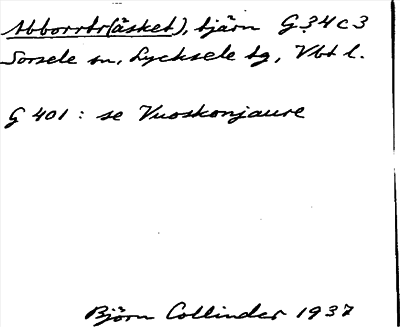 Abborrtr(äsket), tjärn G 34 c 3
Sorsele sn, Lycksele tg, Vbt l.
G 401 : se Vuoskonjaure
Björn Collinder 1937